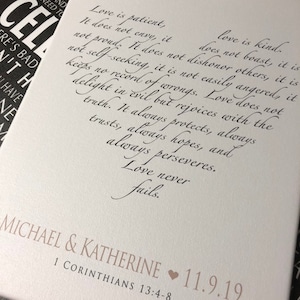 Love is patient, love is kind.
It does not envy, it does not boast, it is
not proud. It does not dishonor others, it is
not self-seeking, it is not easily angered, it
keeps no record of wrongs. Love does not
delight in evil but rejoices with the
truth. It always protects, always
trusts, always hopes, and
always perseveres.
Love never
fails.
MICHAEL & KATHERINE ♥ 11.9.19
1 CORINTHIANS 13:4-8